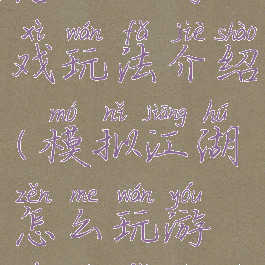 xì wán fǎ jiè shào
戏玩法介绍
mó nǐ jiāng hú
(模拟江湖
zěn me wán yóu
怎么玩游